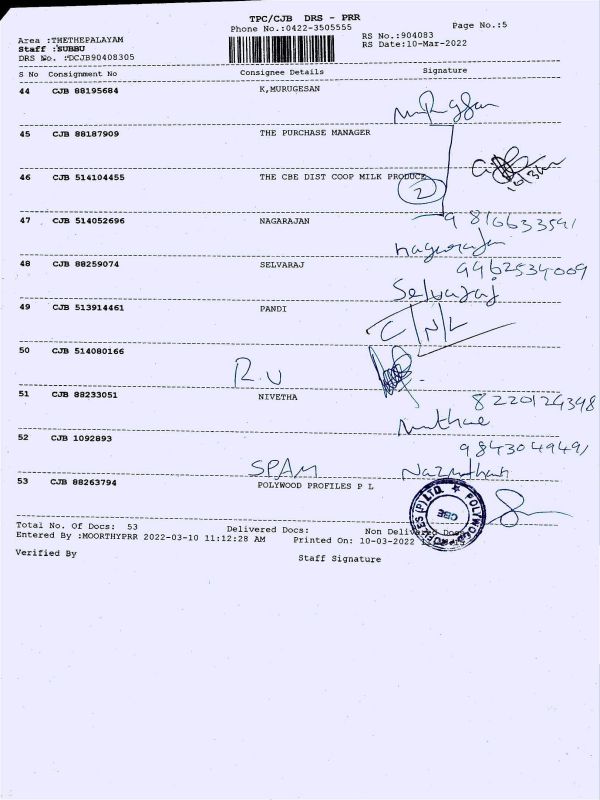 TPC/CJB DRS - PRR
Phone No.:0422-3505555 Page No.:5
Area :THETHEPALAYAM RS No.:904083
Staff :SUBBU RS Date:10-Mar-2022
DRS No. :DCJB90408305
S No Consignment No Consignee Details Signature
44 CJB 88195684 K,MURUGESAN
45 CJB 88187909 THE PURCHASE MANAGER
46 CJB 514104455 THE CBE DIST COOP MILK PRODUCE
2
47 CJB 514052696 NAGARAJAN 9 816633591
nagarajan
48 CJB 88259074 SELVARAJ 9962534009
Selvaraj
49 CJB 513914461 PANDI
C/N/L
50 CJB 514080166
R.U
51 CJB 88233051 NIVETHA 8220124398
52 CJB 1092893 9843049491
SPAM
53 CJB 88263794 POLYWOOD PROFILES P L
POLYWOOD PROFILES (P) LTD. ★ CBE
Total No. Of Docs: 53 Delivered Docs: Non Delivered Docs
Entered By :MOORTHYPRR 2022-03-10 11:12:28 AM Printed On: 10-03-2022
Verified By Staff Signature